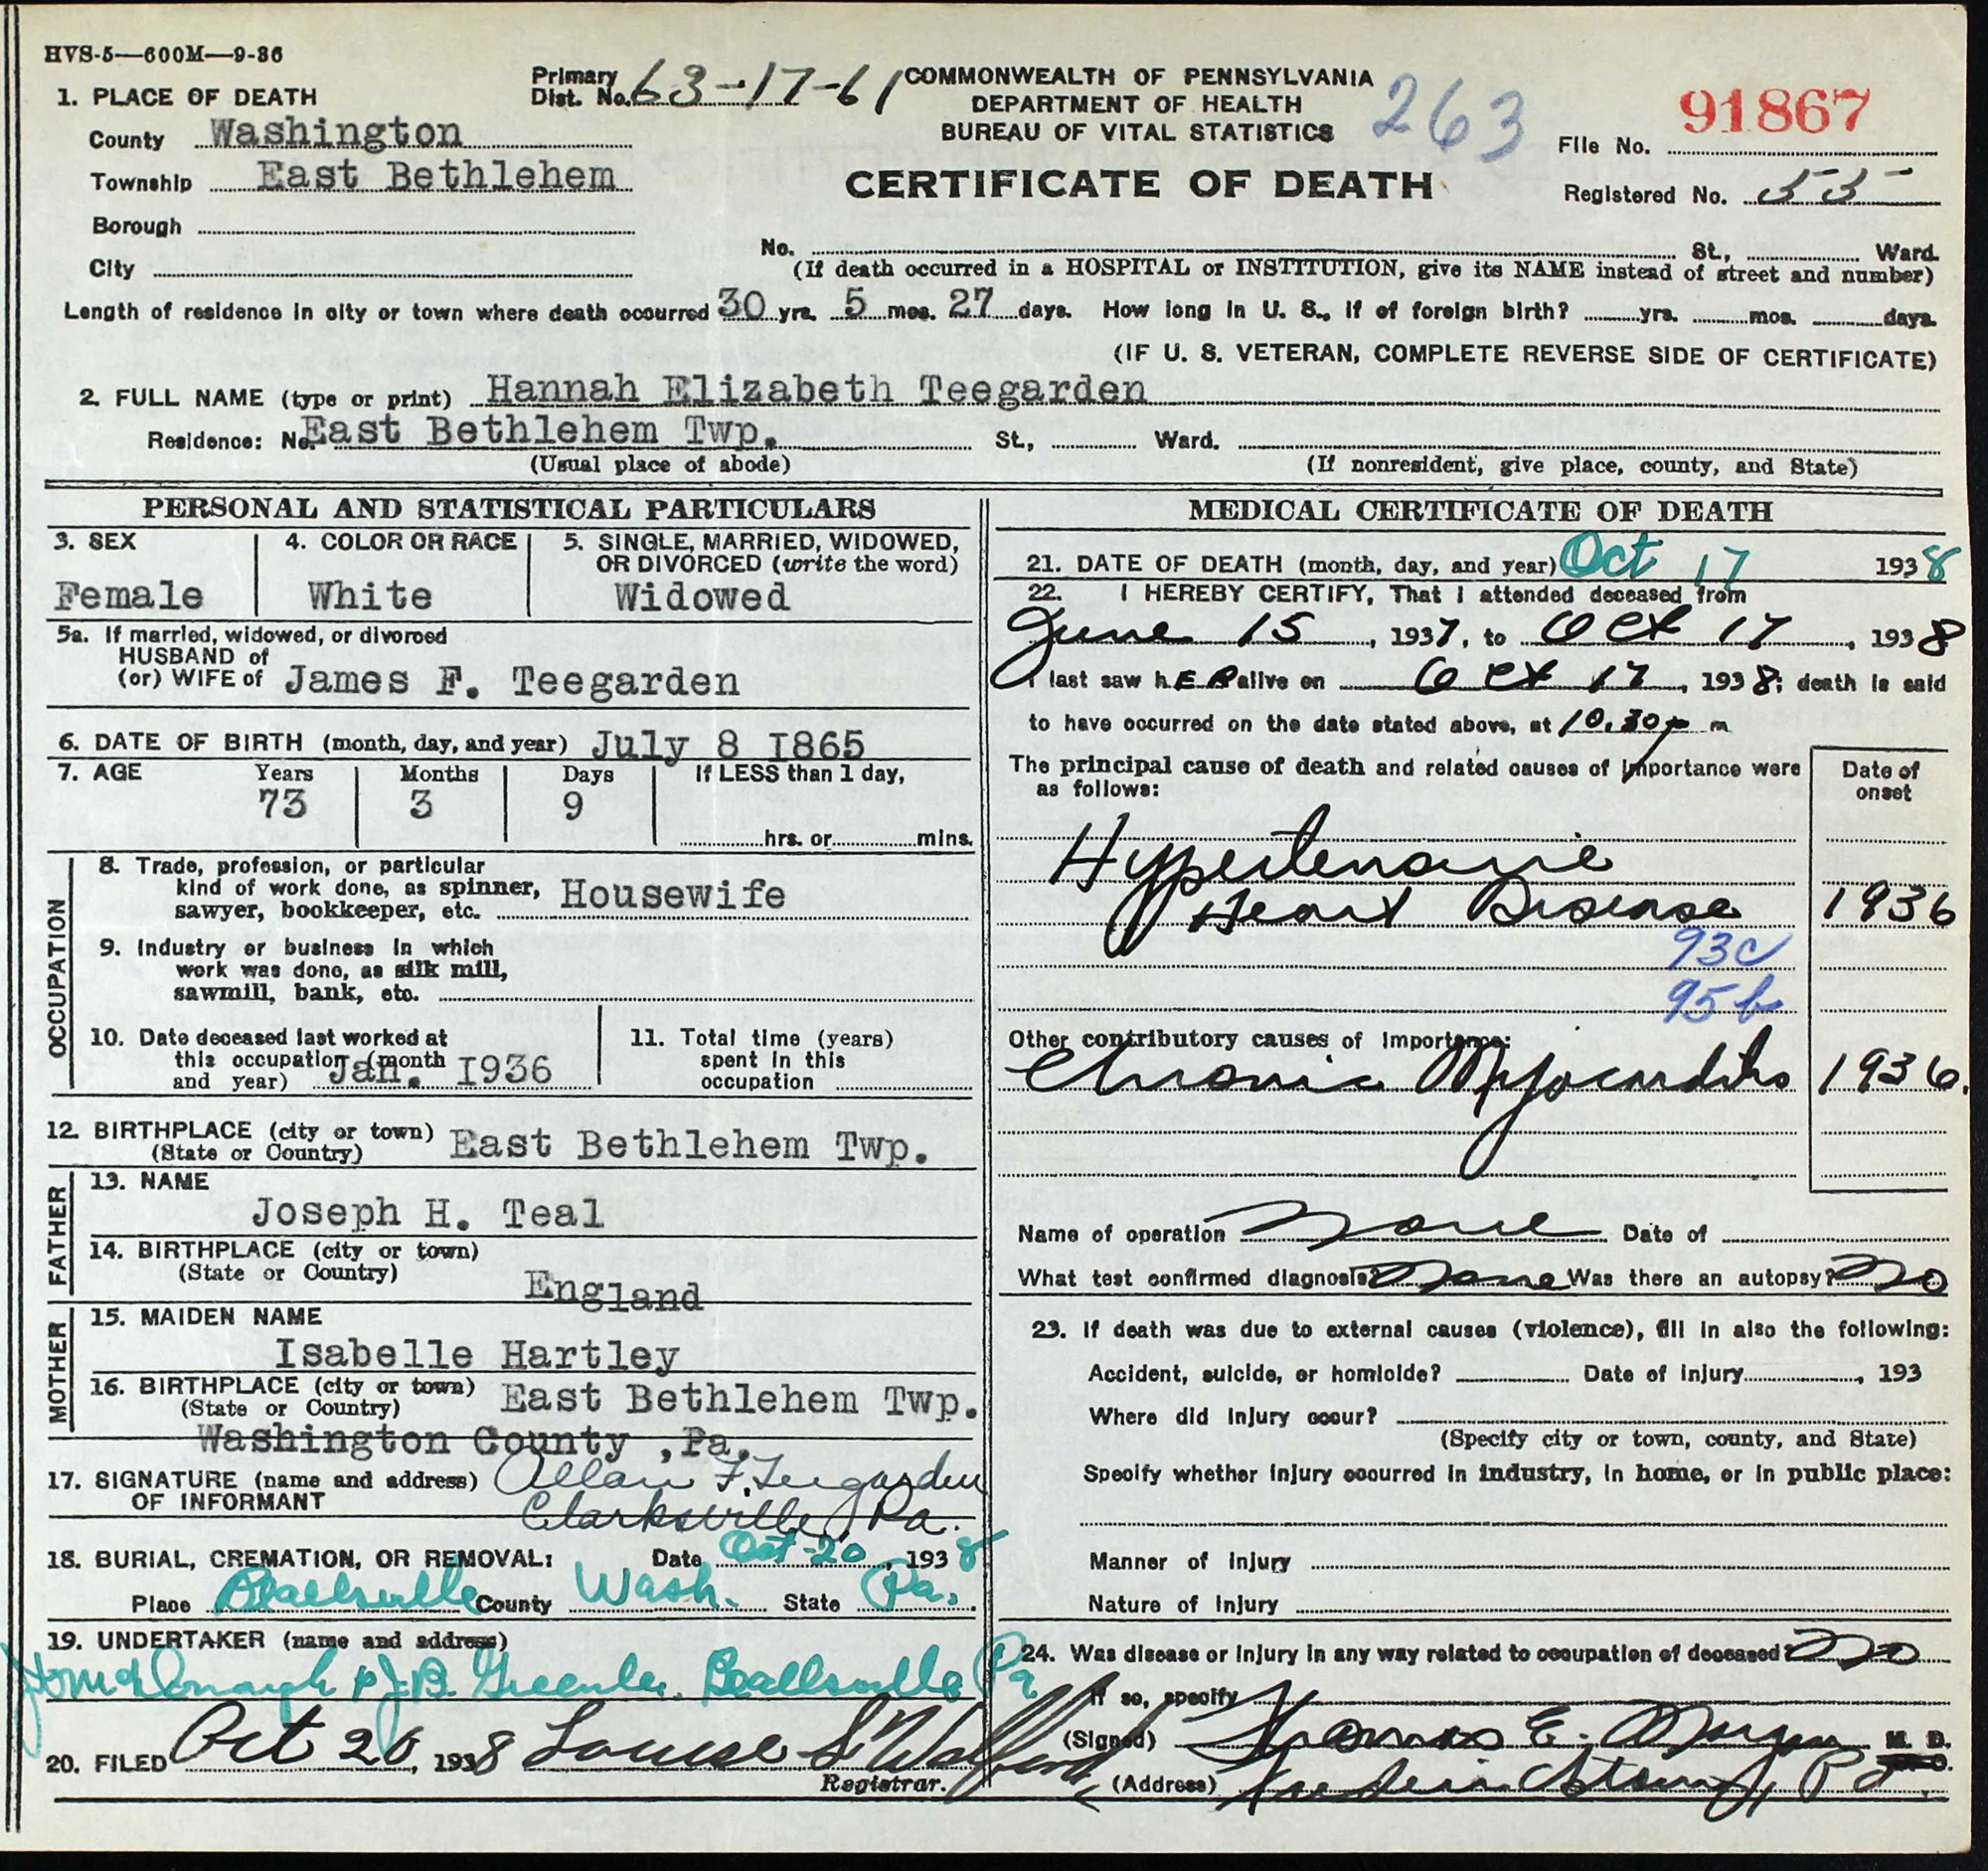 HVS-5—600M—9-36
1. PLACE OF DEATH
Primary Dist. No. 63-17-61
COMMONWEALTH OF PENNSYLVANIA
DEPARTMENT OF HEALTH
BUREAU OF VITAL STATISTICS
263
91867
File No.
County Washington
Township East Bethlehem
CERTIFICATE OF DEATH
Registered No. 55
Borough
City
No. St., Ward.
(If death occurred in a HOSPITAL or INSTITUTION, give its NAME instead of street and number)
Length of residence in city or town where death occurred 30 yrs. 5 mos. 27 days. How long in U. S., if of foreign birth? yrs. mos. days.
(IF U. S. VETERAN, COMPLETE REVERSE SIDE OF CERTIFICATE)
2. FULL NAME (type or print) Hannah Elizabeth Teegarden
Residence: No. East Bethlehem Twp. St., Ward.
(Usual place of abode) (If nonresident, give place, county, and State)
PERSONAL AND STATISTICAL PARTICULARS
3. SEX 4. COLOR OR RACE 5. SINGLE, MARRIED, WIDOWED,
OR DIVORCED (write the word)
Female White Widowed
5a. If married, widowed, or divorced
HUSBAND of
(or) WIFE of James F. Teegarden
6. DATE OF BIRTH (month, day, and year) July 8 1865
7. AGE Years Months Days If LESS than 1 day,
73 3 9
hrs. or mins.
OCCUPATION
8. Trade, profession, or particular
kind of work done, as spinner, Housewife
sawyer, bookkeeper, etc.
9. Industry or business in which
work was done, as silk mill,
sawmill, bank, etc.
10. Date deceased last worked at
this occupation (month
and year) Jan. 1936
11. Total time (years)
spent in this
occupation
12. BIRTHPLACE (city or town) East Bethlehem Twp.
(State or Country)
FATHER
13. NAME
Joseph H. Teal
14. BIRTHPLACE (city or town)
(State or Country)
England
MOTHER
15. MAIDEN NAME
Isabelle Hartley
16. BIRTHPLACE (city or town) East Bethlehem Twp.
(State or Country)
Washington County ,Pa.
17. SIGNATURE (name and address) Allan F. Teegarden
OF INFORMANT Clarksville, Pa.
18. BURIAL, CREMATION, OR REMOVAL: Date Oct-20, 1938
Place Beallsville County Wash. State Pa.
19. UNDERTAKER (name and address)
J.B. Greenlee. Beallsville Pa
20. FILED Oct 20, 1938 Louise S.
Registrar.
MEDICAL CERTIFICATE OF DEATH
21. DATE OF DEATH (month, day, and year) Oct 17 1938
22. I HEREBY CERTIFY, That I attended deceased from
June 15, 1937, to Oct 17, 1938
I last saw hER alive on Oct 17, 1938; death is said
to have occurred on the date stated above, at 10.30 p m
The principal cause of death and related causes of importance were
as follows:
Date of
onset
Hypertensive
Heart Disease 1936
93c
95b
Other contributory causes of importance:
Chronic Myocarditis 1936.
Name of operation None Date of
What test confirmed diagnosis? None Was there an autopsy? No
23. If death was due to external causes (violence), fill in also the following:
Accident, suicide, or homicide? Date of injury, 193
Where did injury occur?
(Specify city or town, county, and State)
Specify whether injury occurred in industry, in home, or in public place:
Manner of injury
Nature of injury
24. Was disease or injury in any way related to occupation of deceased? No
If so, specify
(Signed) Thomas E. Morgan M. D.
(Address) Fredericktown, Pa